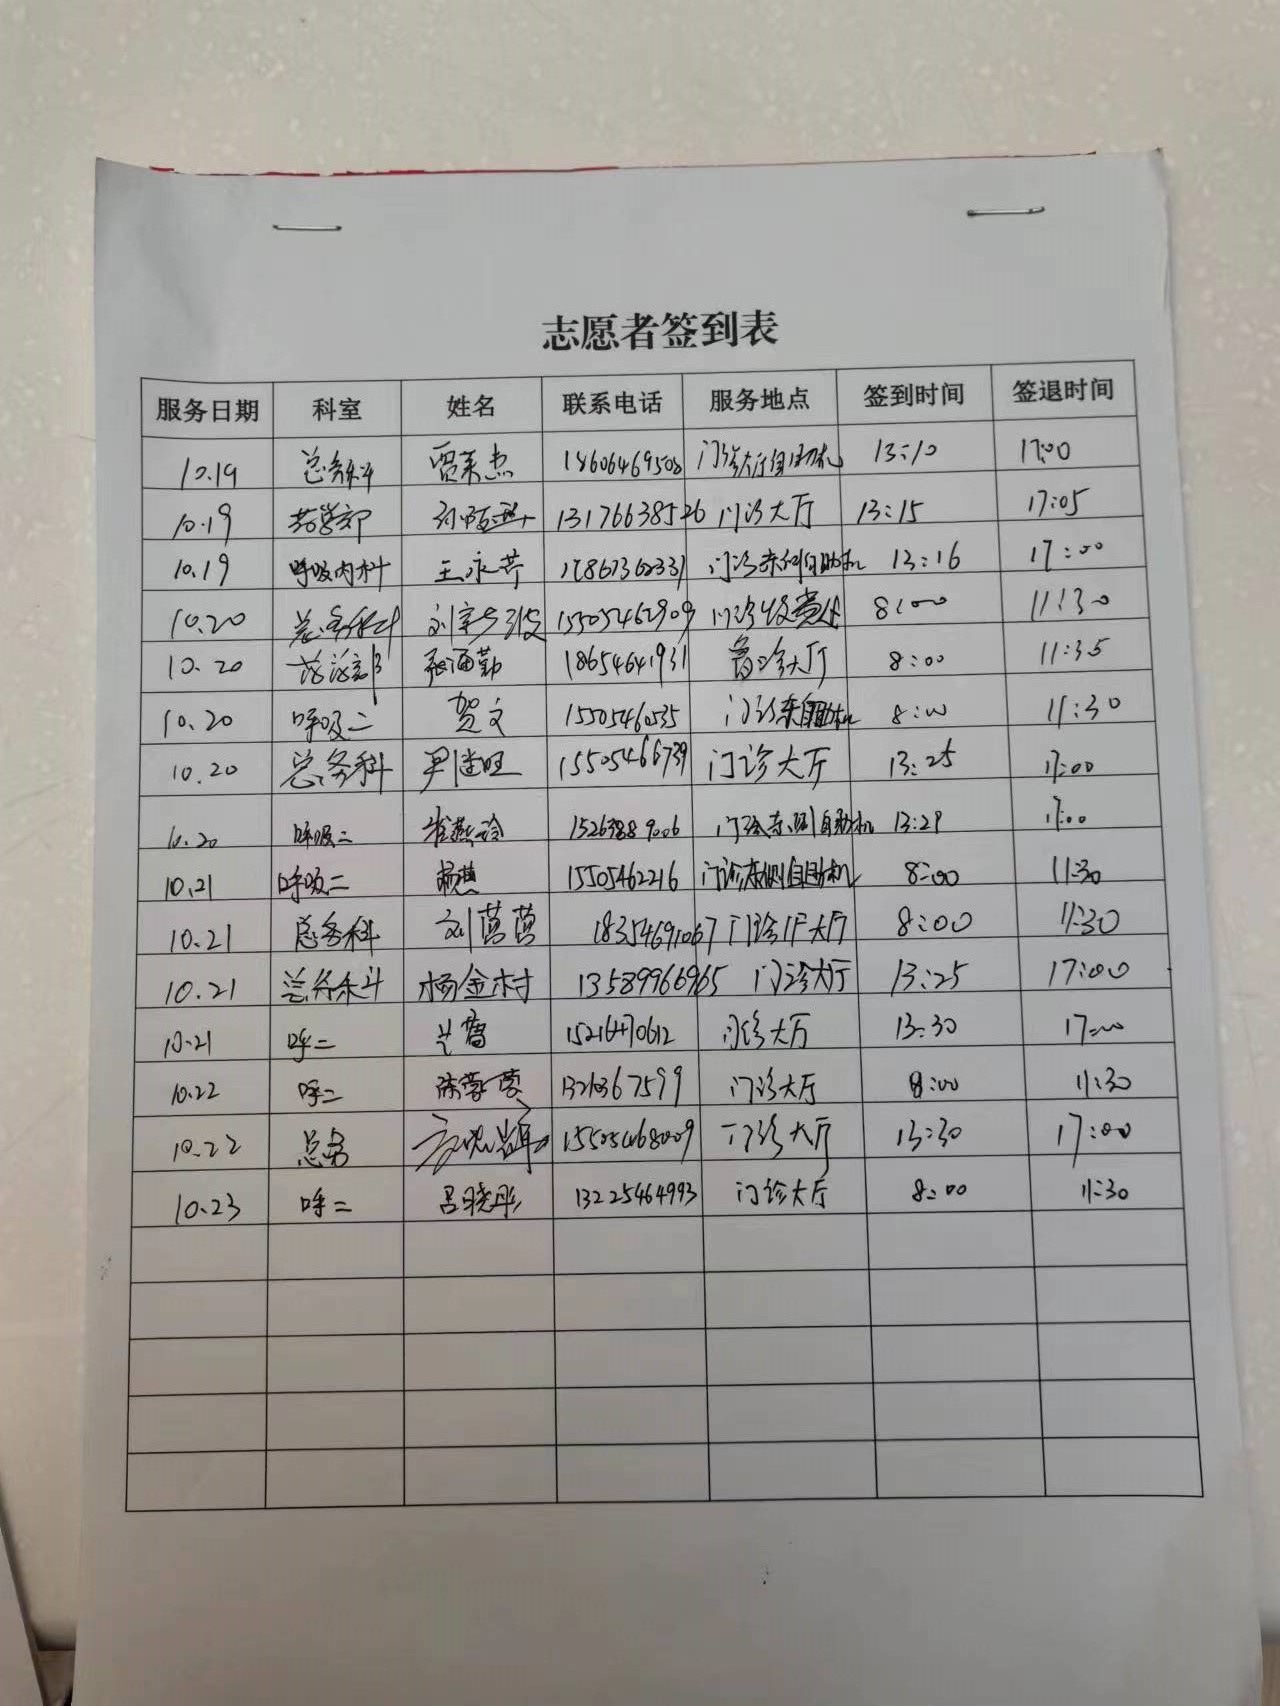 志愿者签到表
服务日期 科室 姓名 联系电话 服务地点 签到时间 签退时间
10.19 总务科 贾来杰 18606469508 门诊大厅自助机 13:10 17:00
10.19 药学部 13176638526 门诊大厅 13:15 17:05
10.19 呼吸内科 王永芹 17861362331 门诊东侧自助机 13:16 17:00
10.20 总务科 15505462909 门诊收费处 8:00 11:30
10.20 张涵勤 18654641931 大厅 8:00 11:35
10.20 呼吸二 贺文 15505460535 门诊东自助机 8:00 11:30
10.20 总务科 15505466739 门诊大厅 13:25 17:00
10.20 呼吸二 15263889006 门诊东侧自助机 13:29 17:00
10.21 呼吸二 15505462216 门诊东侧自助机 8:00 11:30
10.21 总务科 刘莒莒 18354691067 门诊大厅 8:00 11:30
10.21 总务科 杨金村 13589966965 门诊大厅 13:25 17:00
10.21 呼二 15216470612 门诊大厅 13:30 17:00
10.22 呼二 门诊大厅 8:00 11:30
10.22 总务 15505468009 门诊大厅 13:30 17:00
10.23 呼二 吕晓彤 13225464993 门诊大厅 8:00 11:30